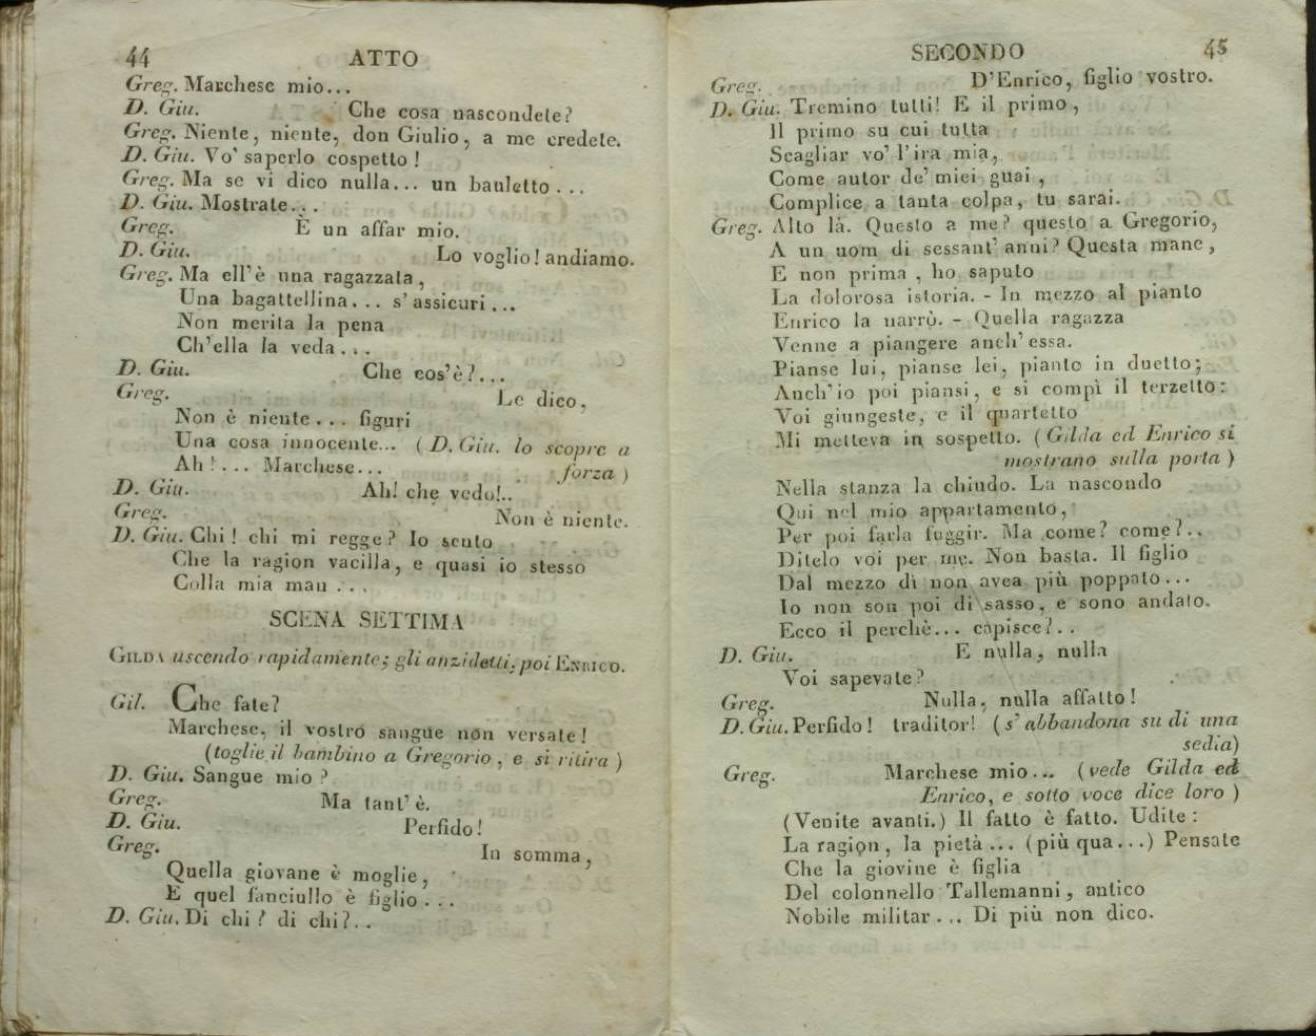 44 ATTO
Greg. Marchese mio...
D. Giu. Che cosa nascondete?
Greg. Niente, niente, don Giulio, a me credete.
D. Giu. Vo' saperlo cospetto!
Greg. Ma se vi dico nulla... un bauletto...
D. Giu. Mostrate...
Greg. È un affar mio.
D. Giu. Lo voglio! andiamo.
Greg. Ma ell'è una ragazzata,
Una bagattellina... s'assicuri...
Non merita la pena
Ch'ella la veda...
D. Giu. Che cos'è?...
Greg. Le dico,
Non è niente... figuri
Una cosa innocente... (D. Giu. lo scopre a
Ah!... Marchese... forza)
D. Giu. Ah! che vedo!..
Greg. Non è niente.
D. Giu. Chi! chi mi regge? Io sento
Che la ragion vacilla, e quasi io stesso
Colla mia man...
SCENA SETTIMA
GILDA uscendo rapidamente; gli anzidetti, poi ENRICO.
Gil. Che fate?
Marchese, il vostro sangue non versate!
(toglie il bambino a Gregorio, e si ritira)
D. Giu. Sangue mio?
Greg. Ma tant'è.
D. Giu. Perfido!
Greg. In somma,
Quella giovane è moglie,
E quel fanciullo è figlio...
D. Giu. Di chi? di chi?..
SECONDO 45
Greg. D'Enrico, figlio vostro.
D. Giu. Tremino tutti! E il primo,
Il primo su cui tutta
Scagliar vo' l'ira mia,
Come autor de' miei guai,
Complice a tanta colpa, tu sarai.
Greg. Alto là. Questo a me? questo a Gregorio,
A un uom di sessant'anni? Questa mane,
E non prima, ho saputo
La dolorosa istoria. - In mezzo al pianto
Enrico la narrò. - Quella ragazza
Venne a piangere anch'essa.
Pianse lui, pianse lei, pianto in duetto;
Anch'io poi piansi, e si compì il terzetto:
Voi giungeste, e il quartetto
Mi metteva in sospetto. (Gilda ed Enrico si
mostrano sulla porta)
Nella stanza la chiudo. La nascondo
Qui nel mio appartamento,
Per poi farla fuggir. Ma come? come?..
Ditelo voi per me. Non basta. Il figlio
Dal mezzo dì non avea più poppato...
Io non son poi di sasso, e sono andato.
Ecco il perchè... capisce?..
D. Giu. E nulla, nulla
Voi sapevate?
Greg. Nulla, nulla affatto!
D. Giu. Perfido! traditor! (s'abbandona su di una
sedia)
Greg. Marchese mio... (vede Gilda ed
Enrico, e sotto voce dice loro)
(Venite avanti.) Il fatto è fatto. Udite:
La ragion, la pietà... (più qua...) Pensate
Che la giovine è figlia
Del colonnello Tallemanni, antico
Nobile militar... Di più non dico.